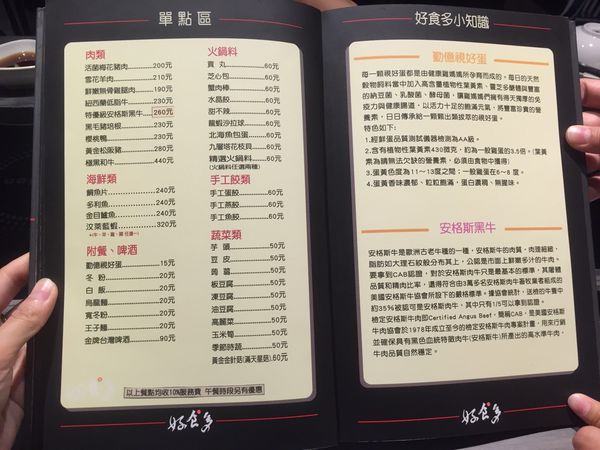 單點區
肉類
活菌梅花豬肉 200元
雪花羊肉 210元
鮮嫩無骨雞腿肉 190元
紐西蘭低脂牛 230元
特優級安格斯黑牛 260元
黑毛豬培根 230元
櫻桃鴨 230元
黃金松阪豬 280元
極黑和牛 440元
海鮮類
鯛魚片 240元
多利魚 240元
金目鱸魚 240元
汶萊藍蝦 320元
附餐、啤酒
勤億視好蛋 15元
冬粉 20元
白飯 20元
烏龍麵 20元
寬冬粉 20元
王子麵 20元
金牌台灣啤酒 90元
火鍋料
貢丸 60元
芝心包 60元
蟹肉棒 60元
水晶餃 60元
甜不辣 60元
龍蝦沙拉球 60元
北海魚包蛋 60元
九層塔花枝貝 60元
精選火鍋料 60元
(火鍋料任選兩種)
手工餃類
手工蛋餃 60元
手工蝦餃 60元
手工魚餃 60元
蔬菜類
芋頭 50元
豆皮 50元
蒟蒻 50元
板豆腐 50元
凍豆腐 50元
油豆腐 50元
高麗菜 50元
玉米筍 50元
季節時蔬 50元
黃金金針菇(滿天星菇) 60元
以上餐點均收10%服務費 午餐時段另有優惠
好食多
好食多小知識
勤億視好蛋
每一顆視好蛋都是由健康雞媽媽所孕育而成的。每日的天然
穀物飼料當中加入高含量植物性葉黃素、靈芝多醣體與豐富
的納豆菌、乳酸菌、酵母菌，讓雞媽媽們擁有得天獨厚的免
疫力與健康腸道，以活力十足的飽滿元氣，將豐富珍貴的營
養素，日日傳承給一顆顆出類拔萃的視好蛋。
特色如下:
1.經鮮蛋品質測試儀器檢測為AA級。
2.含有植物性葉黃素430微克，約為一般雞蛋的3.5倍。(葉黃
素為請無法欠缺的營養素，必須由食物中獲得)
3.蛋黃色度為11～13度之間；一般雞蛋在6～8 度。
4.蛋黃香味濃郁、粒粒飽滿，蛋白濃稠、無腥味。
安格斯黑牛
安格斯牛是歐洲古老牛種的一種，安格斯牛的肉質，肉理細緻，
脂肪如大理石紋般分布其上，公認是市面上鮮嫩多汁的牛肉。
要拿到CAB認證，對於安格斯肉牛只是最基本的標準，其屠體
品質和精肉比率，還得符合由3萬多名安格斯肉牛畜牧業者組成的
美國安格斯牛協會所設下的嚴格標準。據協會統計，送檢的牛隻中
約35%被認可是安格斯肉牛，其中只有1/5可以拿到認證。
檢定安格斯牛肉即Certified Angus Beef，簡稱CAB，是美國安格斯
牛肉協會於1978年成立至今的檢定安格斯牛肉專案計畫，用來行銷
並確保具有黑色血統特徵肉牛(安格斯牛)所產出的高水準牛肉，
牛肉品質自然穩定。
好食多